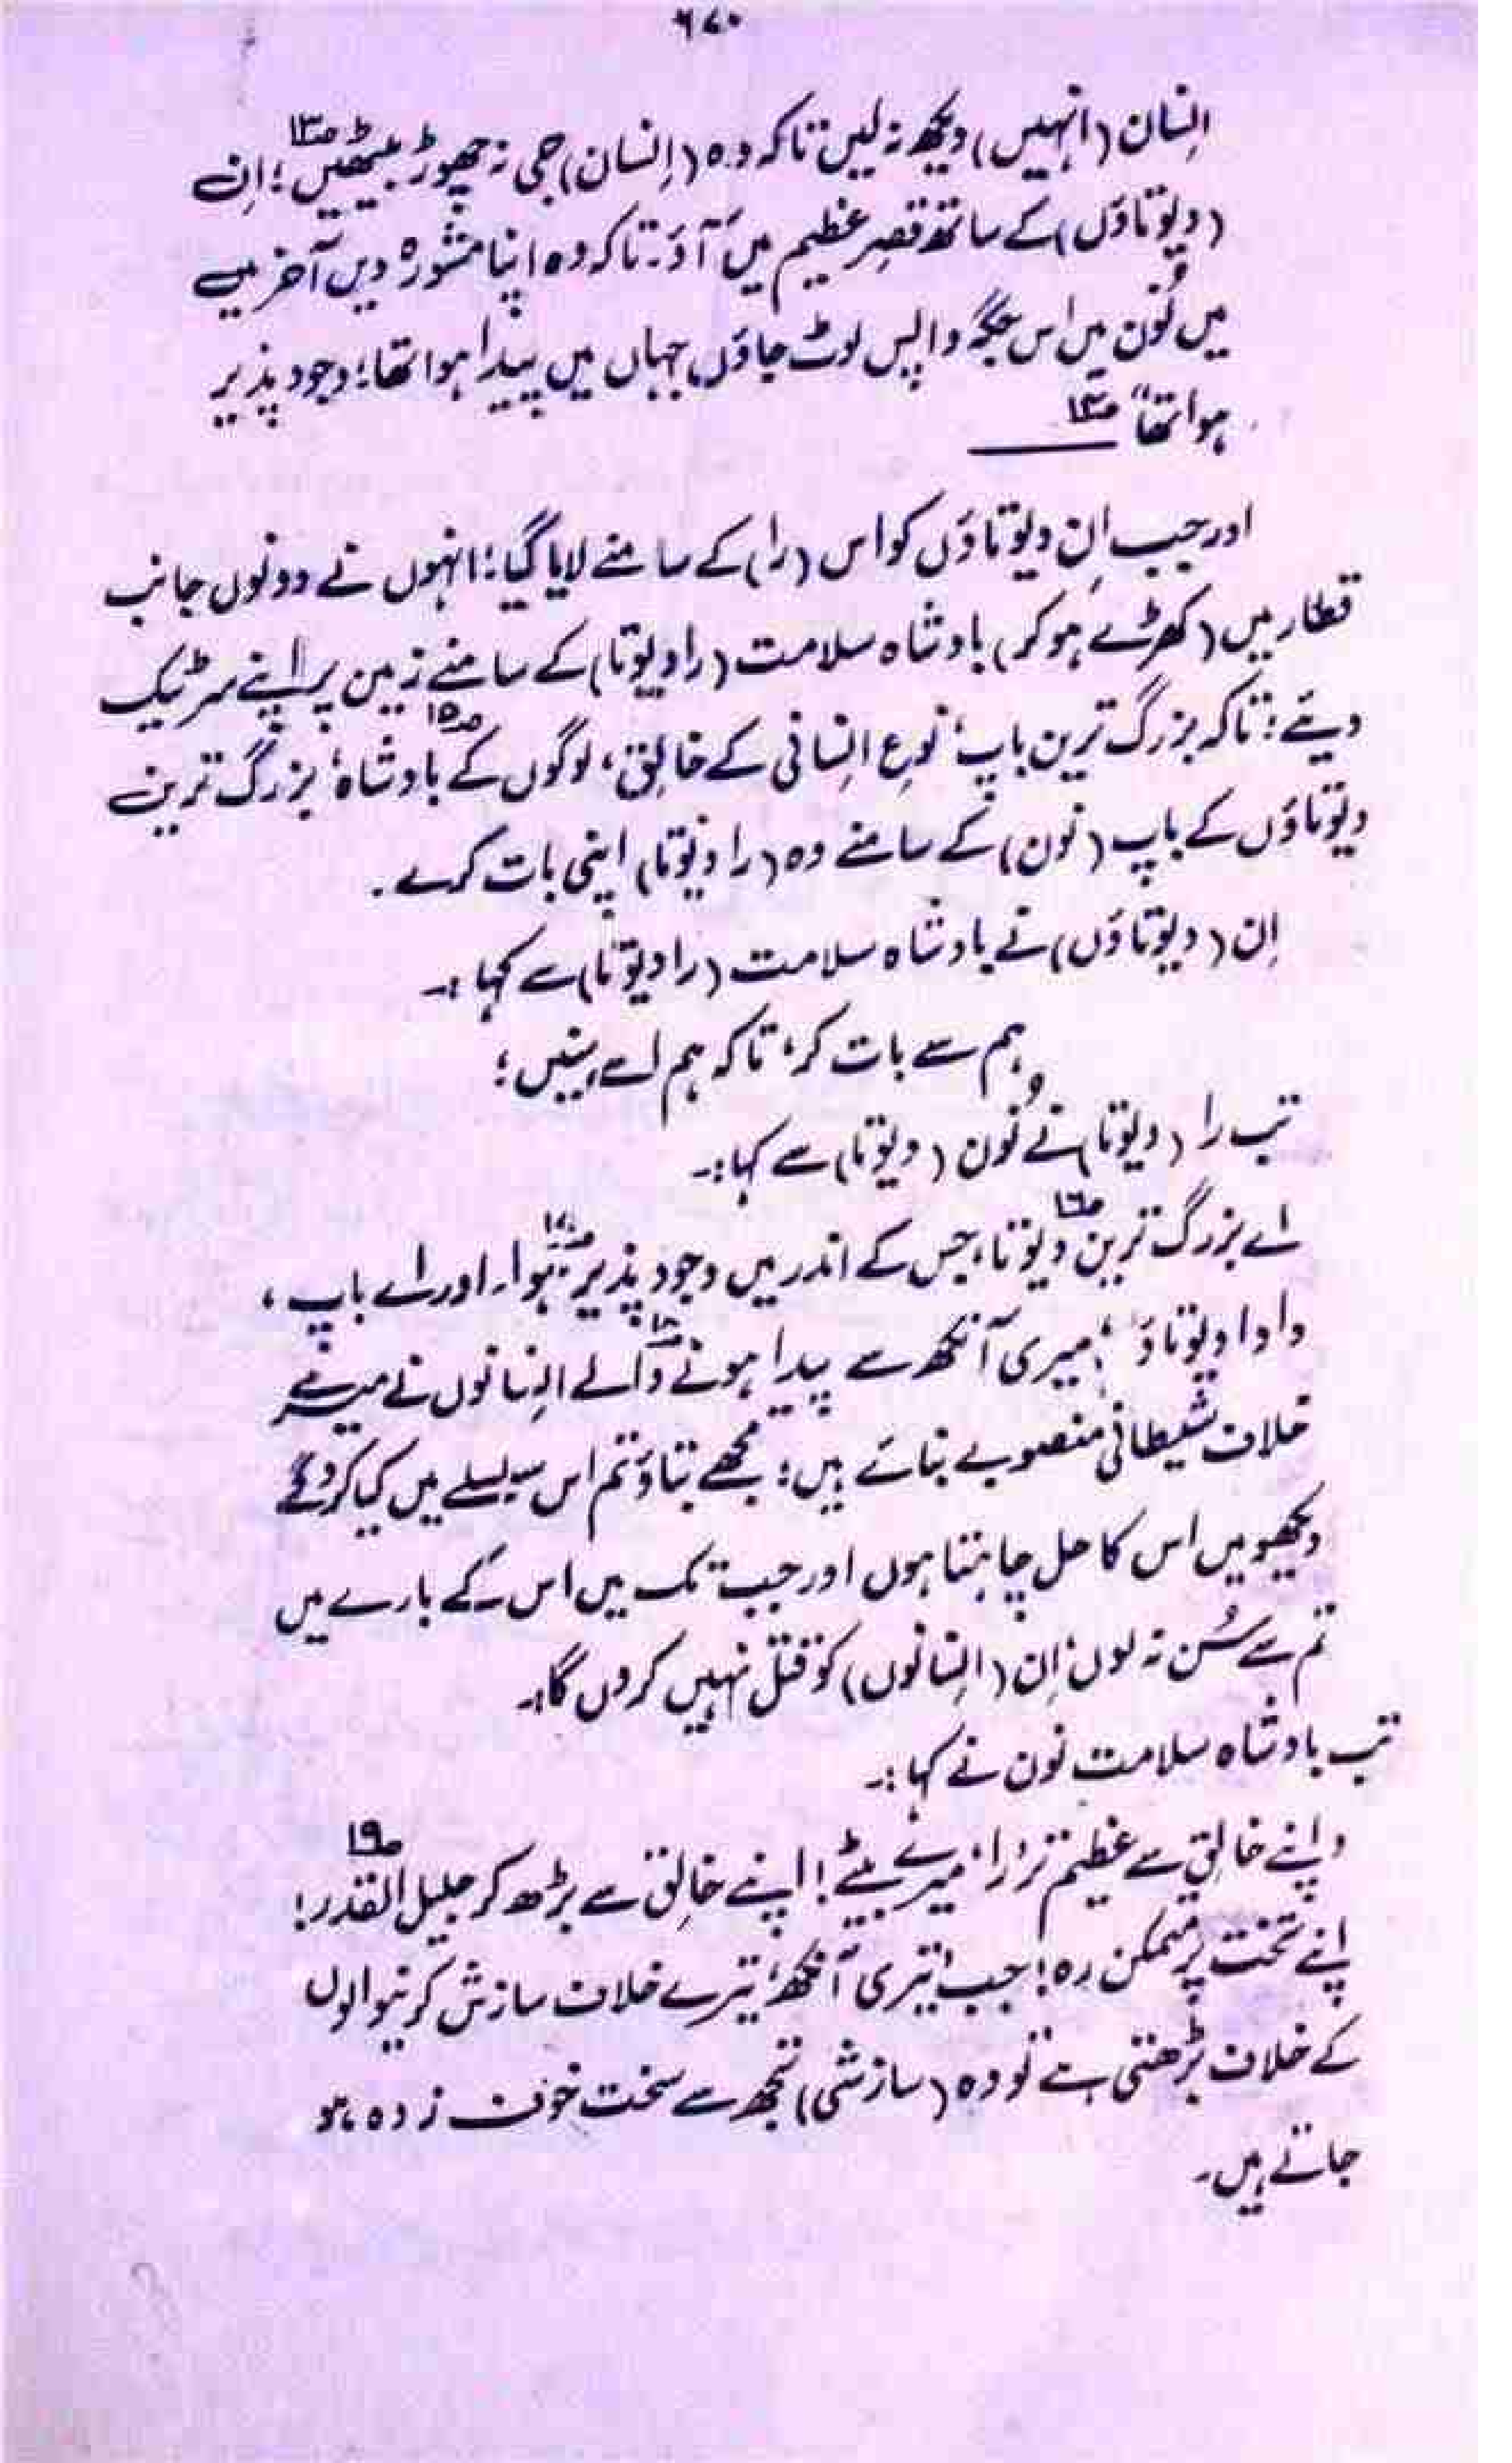 ۶۷۰
انسان (انہیں) دیکھ نہ لیں تاکہ وہ (اِنسان) جی نہ چھوڑ بیٹھیں ۱۳؎؛ اِن
(دیوتاؤں) کے ساتھ قصرِ عظیم میں آؤ۔ تاکہ وہ اپنا مشورہ دیں آخر میے
میں نُون میں اس جگہ واپس لوٹ جاؤں جہاں میں پیدا ہوا تھا؛ وجود پذیر
ہوا تھا" ۱۴؎
اور جب اِن دیوتاؤں کو اس (را) کے سامنے لایا گیا؛ انہوں نے دونوں جانب
قطار میں (کھڑے ہو کر) بادشاہ سلامت (را دیوتا) کے سامنے زمین پر اپنے سر ٹیک
دیئے؛ تاکہ بزرگ ترین باپ، نوع انسانی کے خالِق، لوگوں کے ۱۵؎ بادشاہ، بزرگ ترین
دیوتاؤں کے باپ (نون) کے سامنے وہ (را دیوتا) اپنی بات کرے۔
اِن (دیوتاؤں) نے بادشاہ سلامت (را دیوتا) سے کہا:۔
'ہم سے بات کر، تاکہ ہم اسے سنیں؛
تب را (دیوتا) نے نُون (دیوتا) سے کہا:۔
اے بزرگ ترین ۱۶؎ دیوتا، جس کے اندر میں وجود پذیر ۱۷؎ ہوا۔ اور اے باپ،
دادا دیوتاؤ؛ میری آنکھ سے پیدا ہونے ۱۸؎ والے انسانوں نے میرے
خلاف شیطانی منصوبے بنائے ہیں؛ مجھے بتاؤ تم اس سلسلے میں کیا کرو گے
دیکھو میں اس کا حل چاہتا ہوں اور جب تک میں اس کے بارے میں
تم سے سُن نہ لوں، اِن (انسانوں) کو قتل نہیں کروں گا:۔
تب بادشاہ سلامت نون نے کہا:۔
'اپنے خالِق سے عظیم تر 'را' میرے بیٹے! اپنے خالِق سے بڑھ کر جلیل القدر ۱۹؎!
اپنے تخت پر متمکن رہ؛ جب 'تیری آنکھ' تیرے خلاف سازش کرنیوالوں
کے خلاف بڑھتی ہے تو وہ (سازشی) تجھ سے سخت خوف زدہ ہو
جاتے ہیں۔